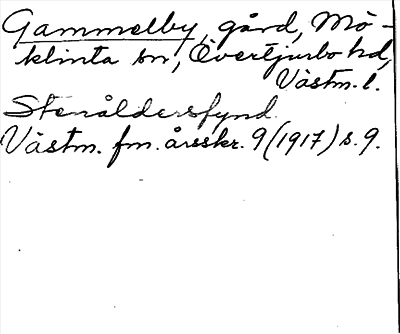 Gammelby, gård, Mö-
klinta sn, Övertjurbo hd,
Västm. l.
Stenåldersfynd.
Västm. fm. årsskr. 9 (1917) s. 9.